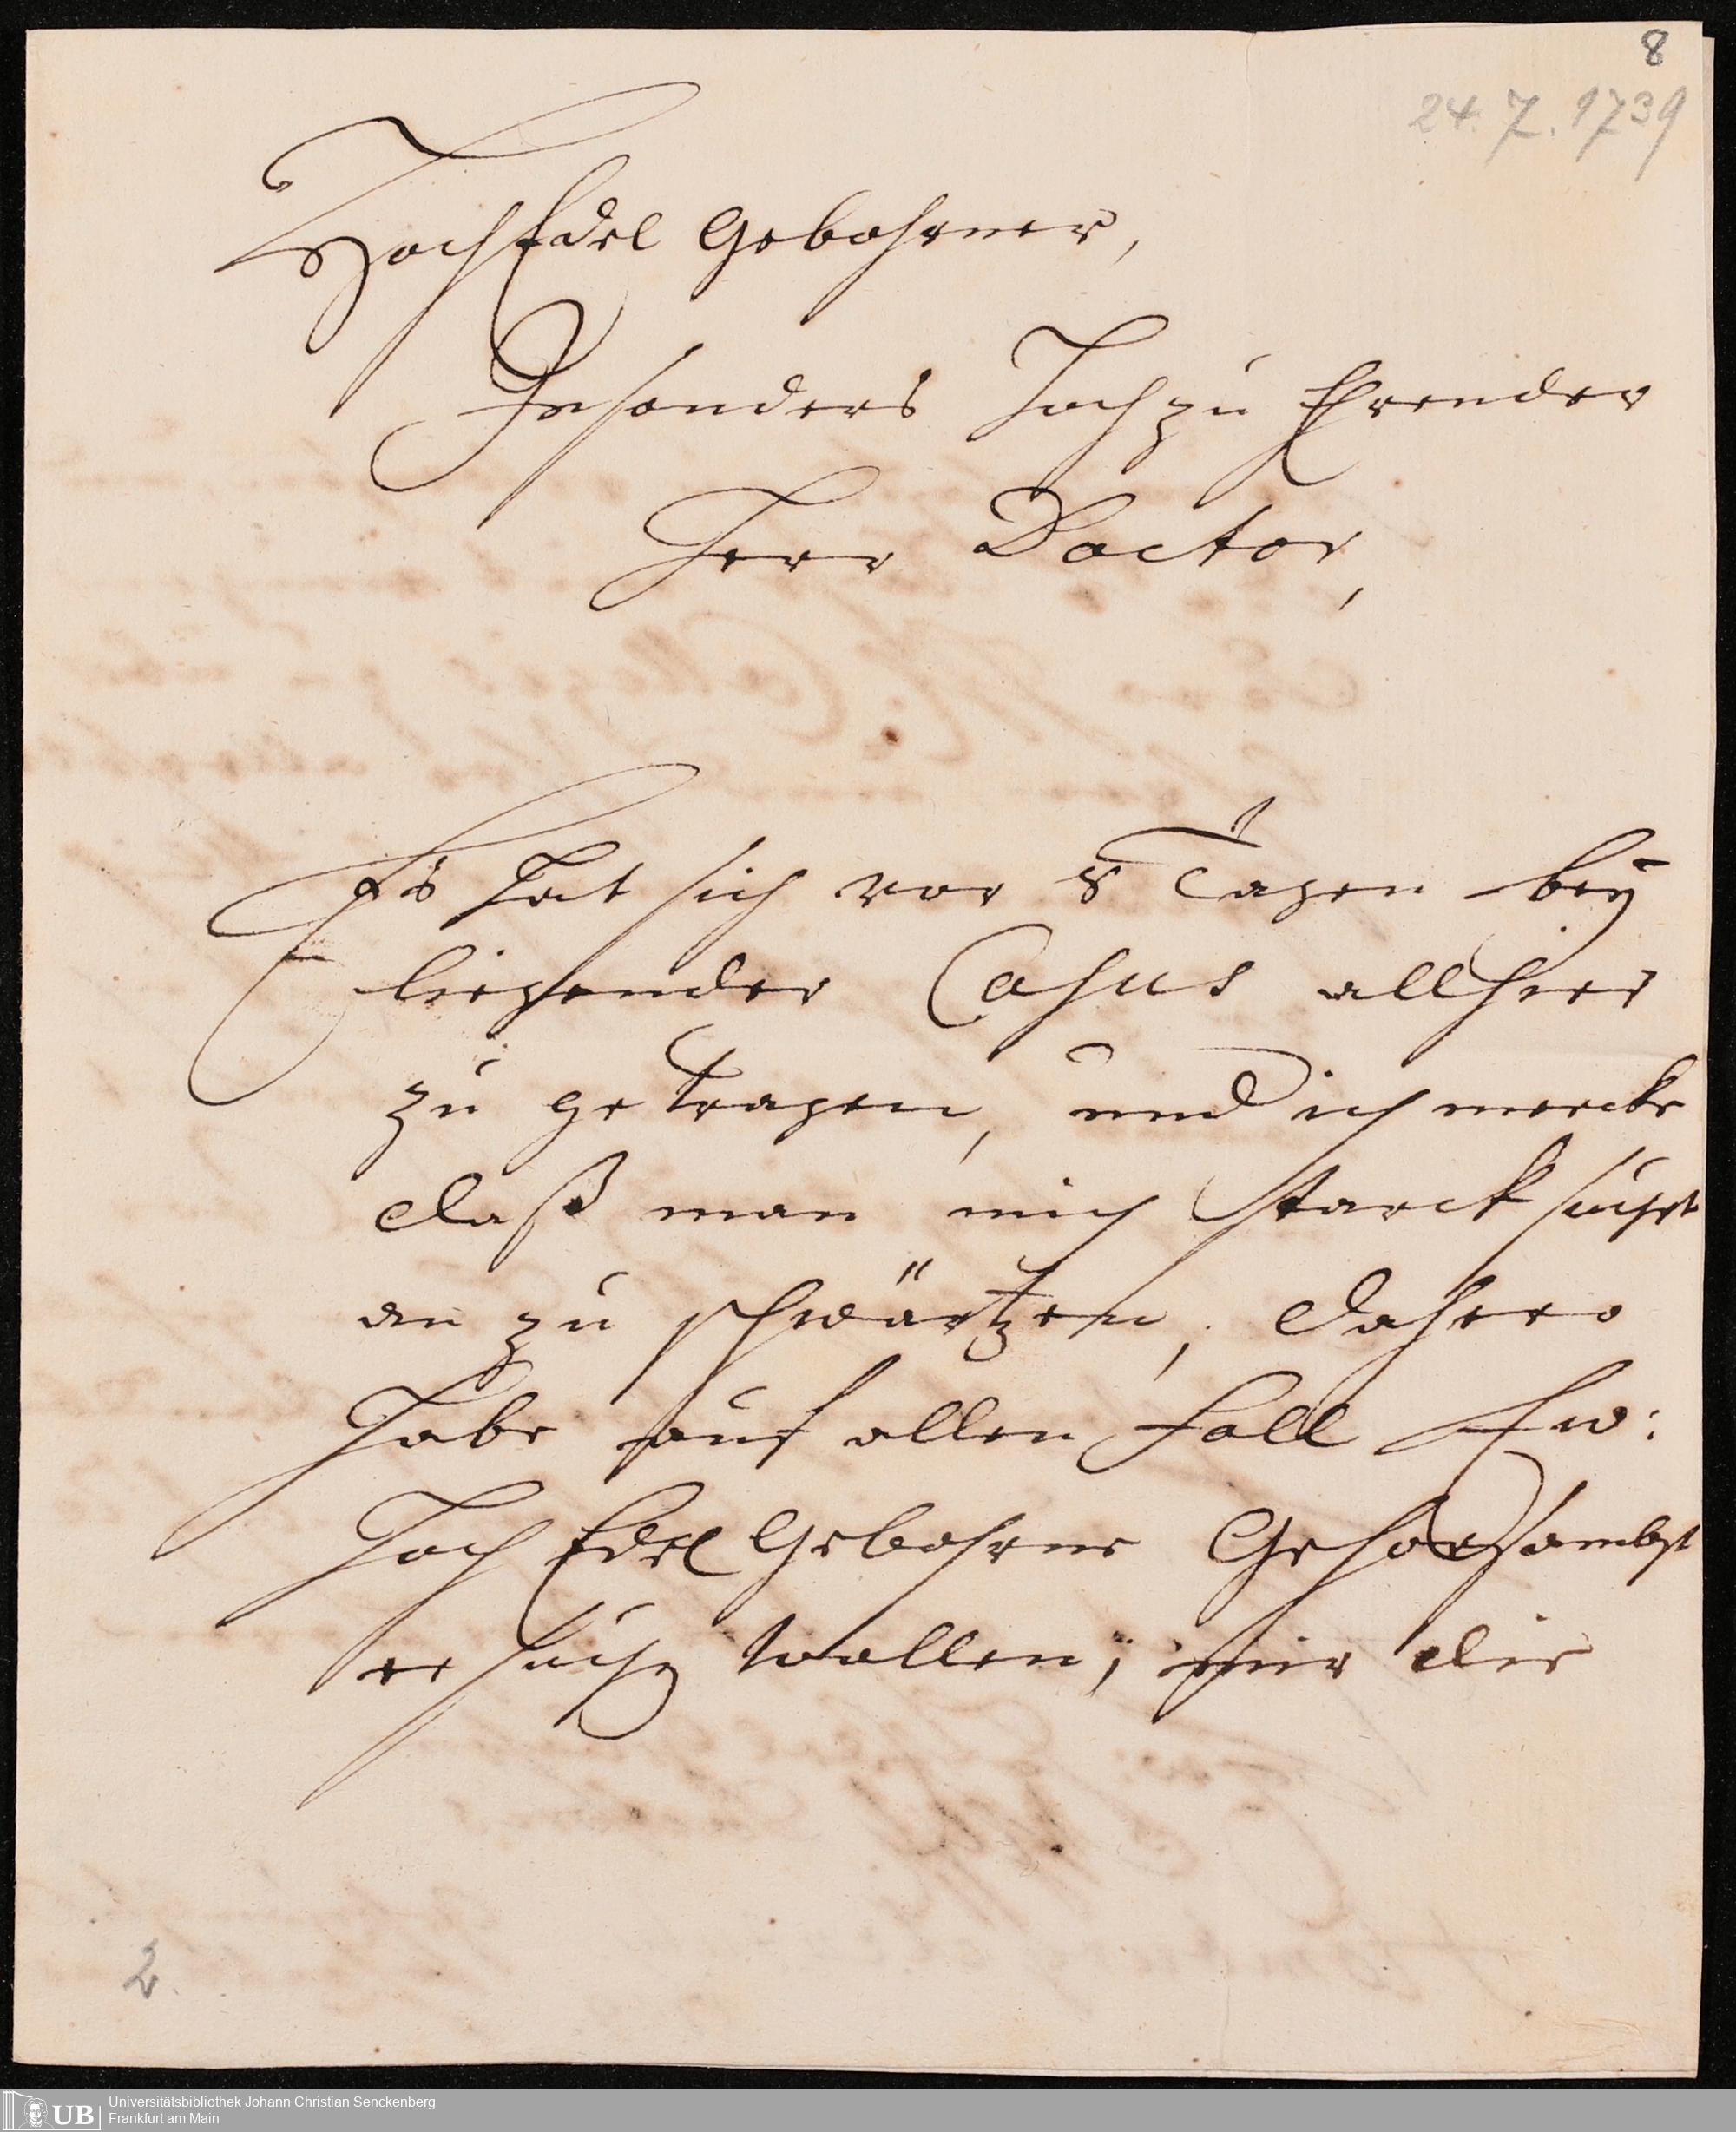 8
24. 7. 1739
HochEdel Gebohrner,
Insonders Hoch zu Ehrender
Herr Doctor,
Es hat sich vor 8 Tagen bey
liegender Casus allhier
zu getragen, und ich mercke
daß man mich starck suchet
an zu schwärtzen, dahero
habe auf allen Fall Ew:
Hoch Edel Gebohrne Gehorsambst
ersuchen wollen, mir die
2.
UB
Universitätsbibliothek Johann Christian Senckenberg
Frankfurt am Main